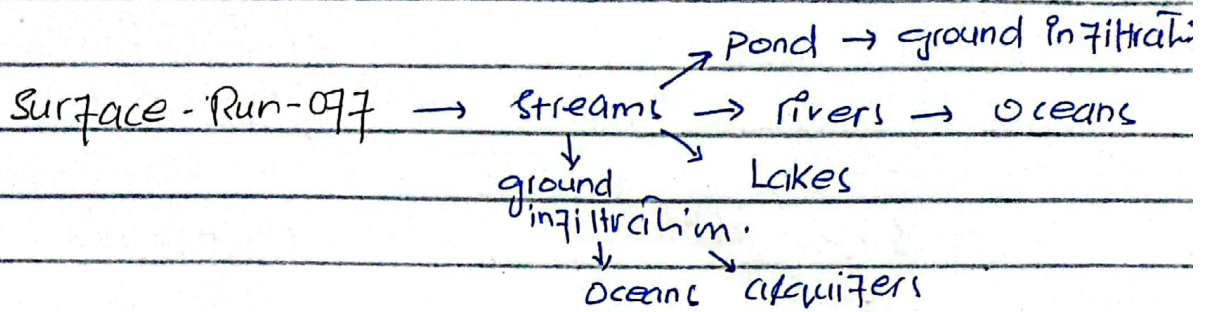 Pond → ground infiltrati
Surface - Run-off → Streams → rivers → Oceans
ground Lakes
infiltration.
Oceans acquifers